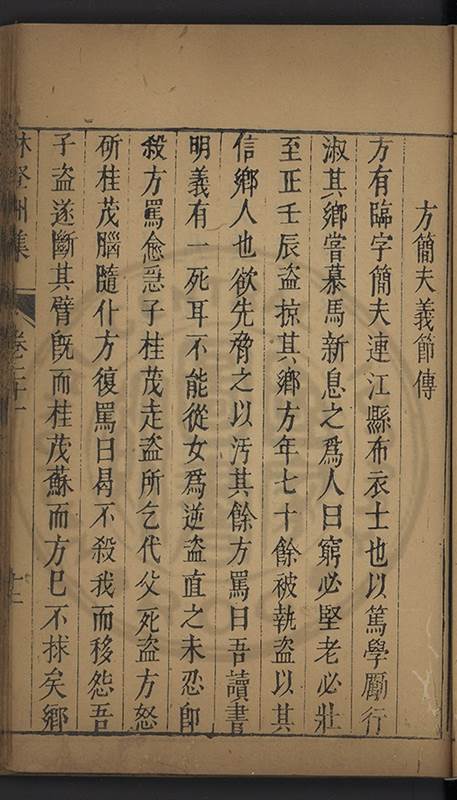 方簡夫義節傳
方有臨字簡夫連江縣布衣士也以篤學勵行
淑其鄉嘗慕馬新息之爲人曰窮必堅老必壯
至正壬辰盜掠其鄉方年七十餘被執盜以其
信鄉人也欲先脅之以汚其餘方罵曰吾讀書
明義有一死耳不能從女爲逆盜直之未忍卽
殺方罵愈惡子桂茂走盜所乞代父死盜方怒
斫桂茂腦隨仆方復罵曰曷不殺我而移怨吾
子盜遂斷其臂旣而桂茂蘇而方已不捄矣鄉
林登州集
卷二十一
十二